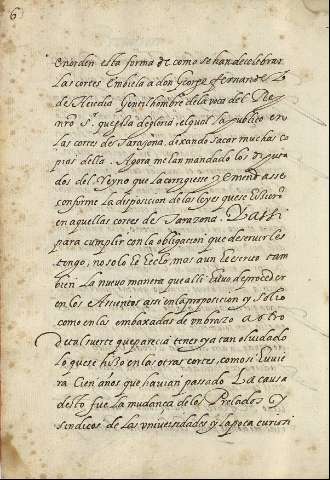 6
en orden esta forma de como se han de celebrar
Las cortes Embiela a don George fernandez
de Heredia Gentilhombre de la boca del Rey
nrõ S.r que esta de gloria, el qual la publico en
las cortes de Taraçona, dexando sacar muchas co
pias della. Agora me lan mandado los Diputa
dos del reyno que la corrigiese y emendasse
conforme La disposicion de las leyes que se hizierõ
en aquellas cortes de Tarazona.
para cumplir con la obligacion que de servirles
tengo, no solo he hecho, mas aun he escrito tam
bien La nueva manera que alli huvo de proceder
en los Assuntos assi en la proposicion y solio
como en las embaxadas de un braço a otro
De tal suerte que parecia tenerya tan olvidado
Lo que se hizo en las otras cortes, como si huvie
ra Cien años que havian passado. La causa
desto fue La mudança de los Prelados y
sindicos de las universidades y la poca curiosi